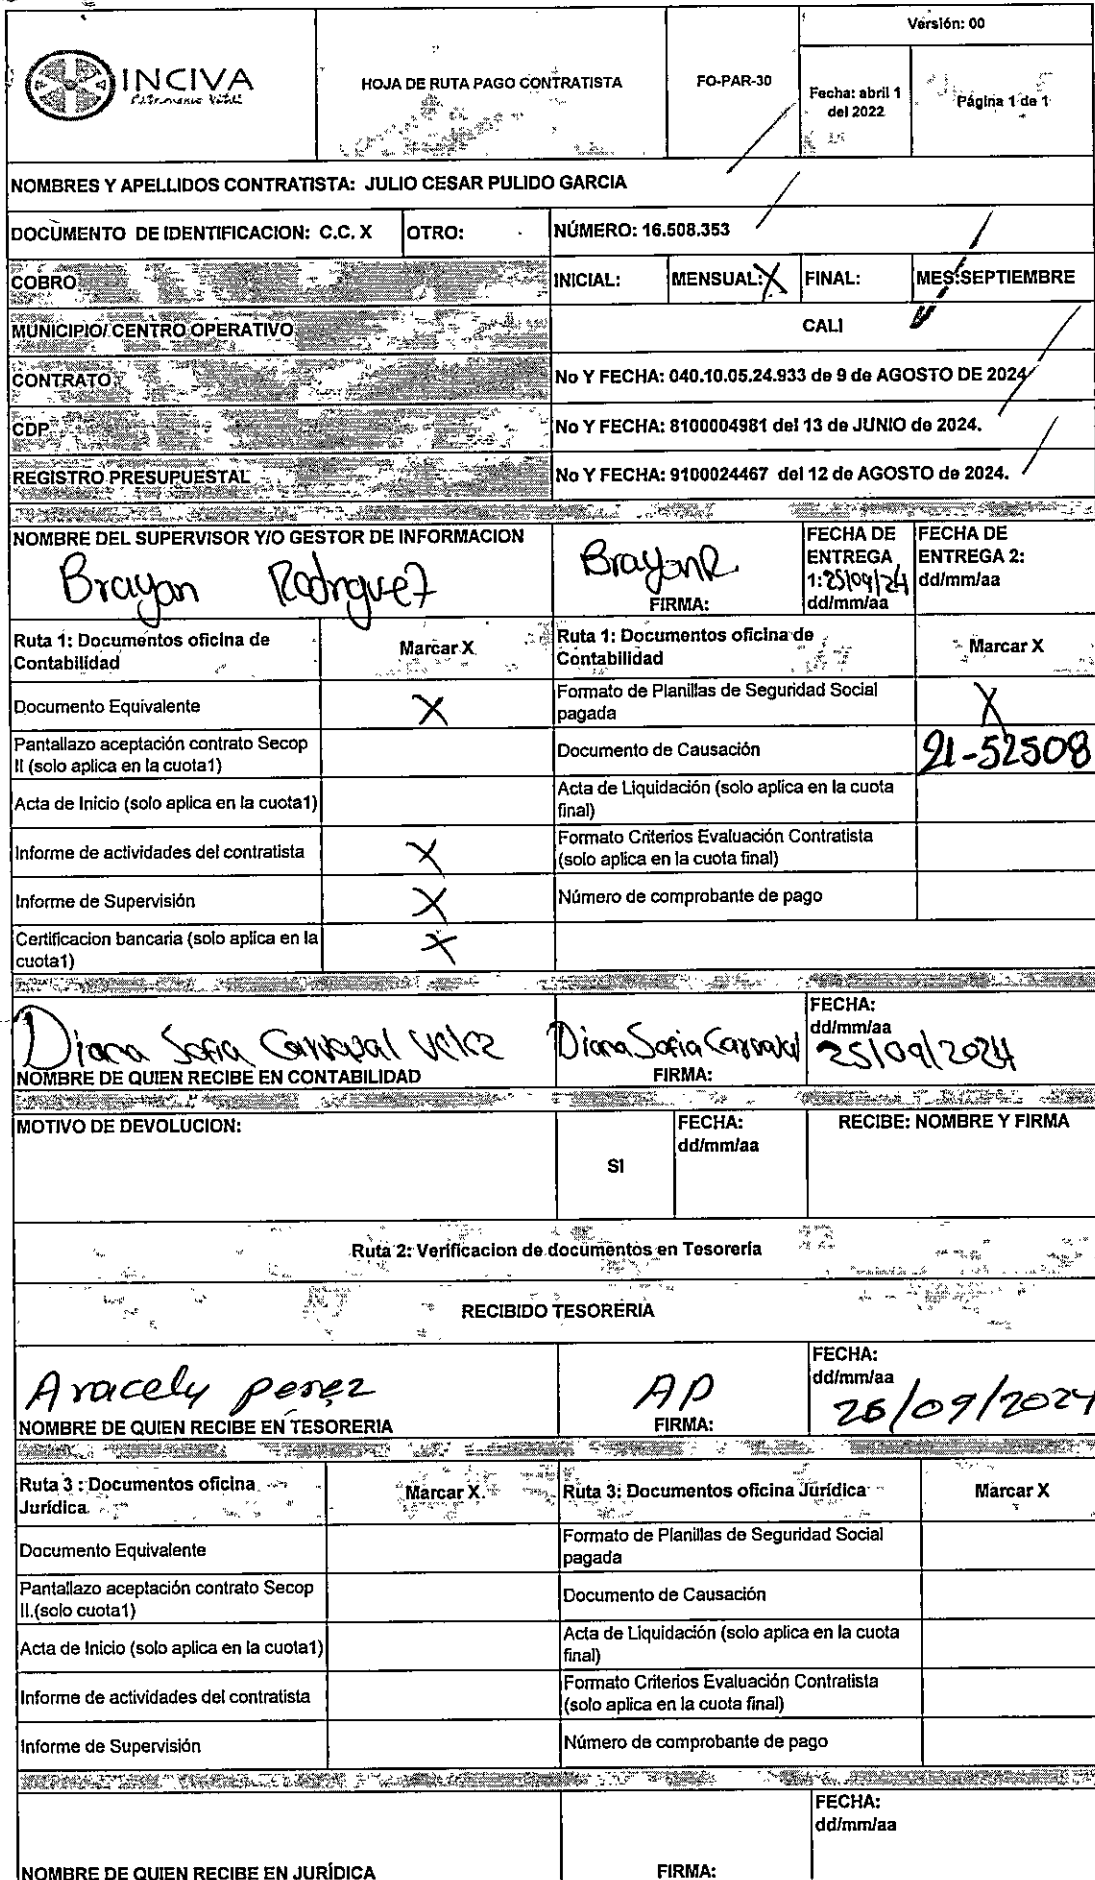 INCIVA
Patrimonio Vital
HOJA DE RUTA PAGO CONTRATISTA
FO-PAR-30
Versión: 00
Fecha: abril 1
del 2022
Página 1 de 1
NOMBRES Y APELLIDOS CONTRATISTA: JULIO CESAR PULIDO GARCIA
DOCUMENTO DE IDENTIFICACION: C.C. X
OTRO:
NÚMERO: 16.508.353
COBRO
INICIAL:
MENSUAL: X
FINAL:
MES:SEPTIEMBRE
MUNICIPIO/ CENTRO OPERATIVO
CALI
CONTRATO
No Y FECHA: 040.10.05.24.933 de 9 de AGOSTO DE 2024
CDP
No Y FECHA: 8100004981 del 13 de JUNIO de 2024.
REGISTRO PRESUPUESTAL
No Y FECHA: 9100024467 del 12 de AGOSTO de 2024.
NOMBRE DEL SUPERVISOR Y/O GESTOR DE INFORMACION
Brayan Rodriguez
BrayanR
FIRMA:
FECHA DE
ENTREGA
1:25/09/24
dd/mm/aa
FECHA DE
ENTREGA 2:
dd/mm/aa
Ruta 1: Documentos oficina de
Contabilidad
Marcar X
Ruta 1: Documentos oficina de
Contabilidad
Marcar X
Documento Equivalente
X
Formato de Planillas de Seguridad Social
pagada
X
Pantallazo aceptación contrato Secop
II (solo aplica en la cuota1)
Documento de Causación
21-52508
Acta de Inicio (solo aplica en la cuota1)
Acta de Liquidación (solo aplica en la cuota
final)
Informe de actividades del contratista
X
Formato Criterios Evaluación Contratista
(solo aplica en la cuota final)
Informe de Supervisión
X
Número de comprobante de pago
Certificacion bancaria (solo aplica en la
cuota1)
X
Diana Sofia Carvajal Velez
NOMBRE DE QUIEN RECIBE EN CONTABILIDAD
Diana Sofia Carvajal
FIRMA:
FECHA:
dd/mm/aa
25/09/2024
MOTIVO DE DEVOLUCION:
SI
FECHA:
dd/mm/aa
RECIBE: NOMBRE Y FIRMA
Ruta 2: Verificacion de documentos en Tesorería
RECIBIDO TESORERIA
Aracely perez
NOMBRE DE QUIEN RECIBE EN TESORERIA
AP
FIRMA:
FECHA:
dd/mm/aa
26/09/2024
Ruta 3 : Documentos oficina
Jurídica
Marcar X
Ruta 3: Documentos oficina Jurídica
Marcar X
Documento Equivalente
Formato de Planillas de Seguridad Social
pagada
Pantallazo aceptación contrato Secop
II.(solo cuota1)
Documento de Causación
Acta de Inicio (solo aplica en la cuota1)
Acta de Liquidación (solo aplica en la cuota
final)
Informe de actividades del contratista
Formato Criterios Evaluación Contratista
(solo aplica en la cuota final)
Informe de Supervisión
Número de comprobante de pago
NOMBRE DE QUIEN RECIBE EN JURÍDICA
FIRMA:
FECHA:
dd/mm/aa